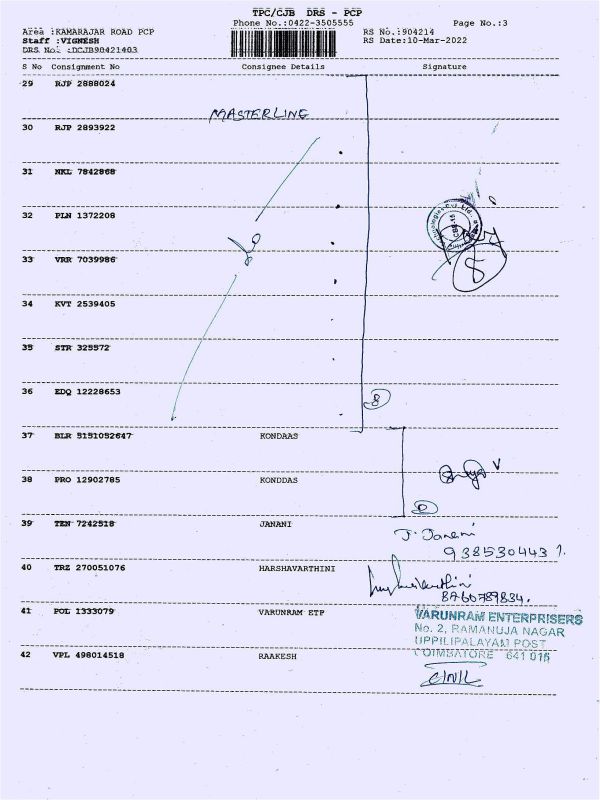 TPC/CJB DRS - PCP
Phone No.:0422-3505555 Page No.:3
Area :KAMARAJAR ROAD PCP RS No.:904214
Staff :VIGNESH RS Date:10-Mar-2022
DRS No. :DCJB90421403
S No Consignment No Consignee Details Signature
29 RJP 2888024
MASTERLINE
30 RJP 2893922
31 NKL 7842868
32 PLN 1372208
33 VRR 7039986
8
34 KVT 2539405
35 STR 325572
36 EDQ 12228653
8
37 BLR 5151052647 KONDAAS
38 PRO 12902785 KONDDAS
39 TEN 7242518 JANANI
J. Janani
9385304431.
40 TRZ 270051076 HARSHAVARTHINI
8760789834.
41 POL 1333079 VARUNRAM ETP
VARUNRAM ENTERPRISERS
No. 2, RAMANUJA NAGAR
UPPILIPALAYAM POST
COIMBATORE 641 015
42 VPL 498014518 RAAKESH